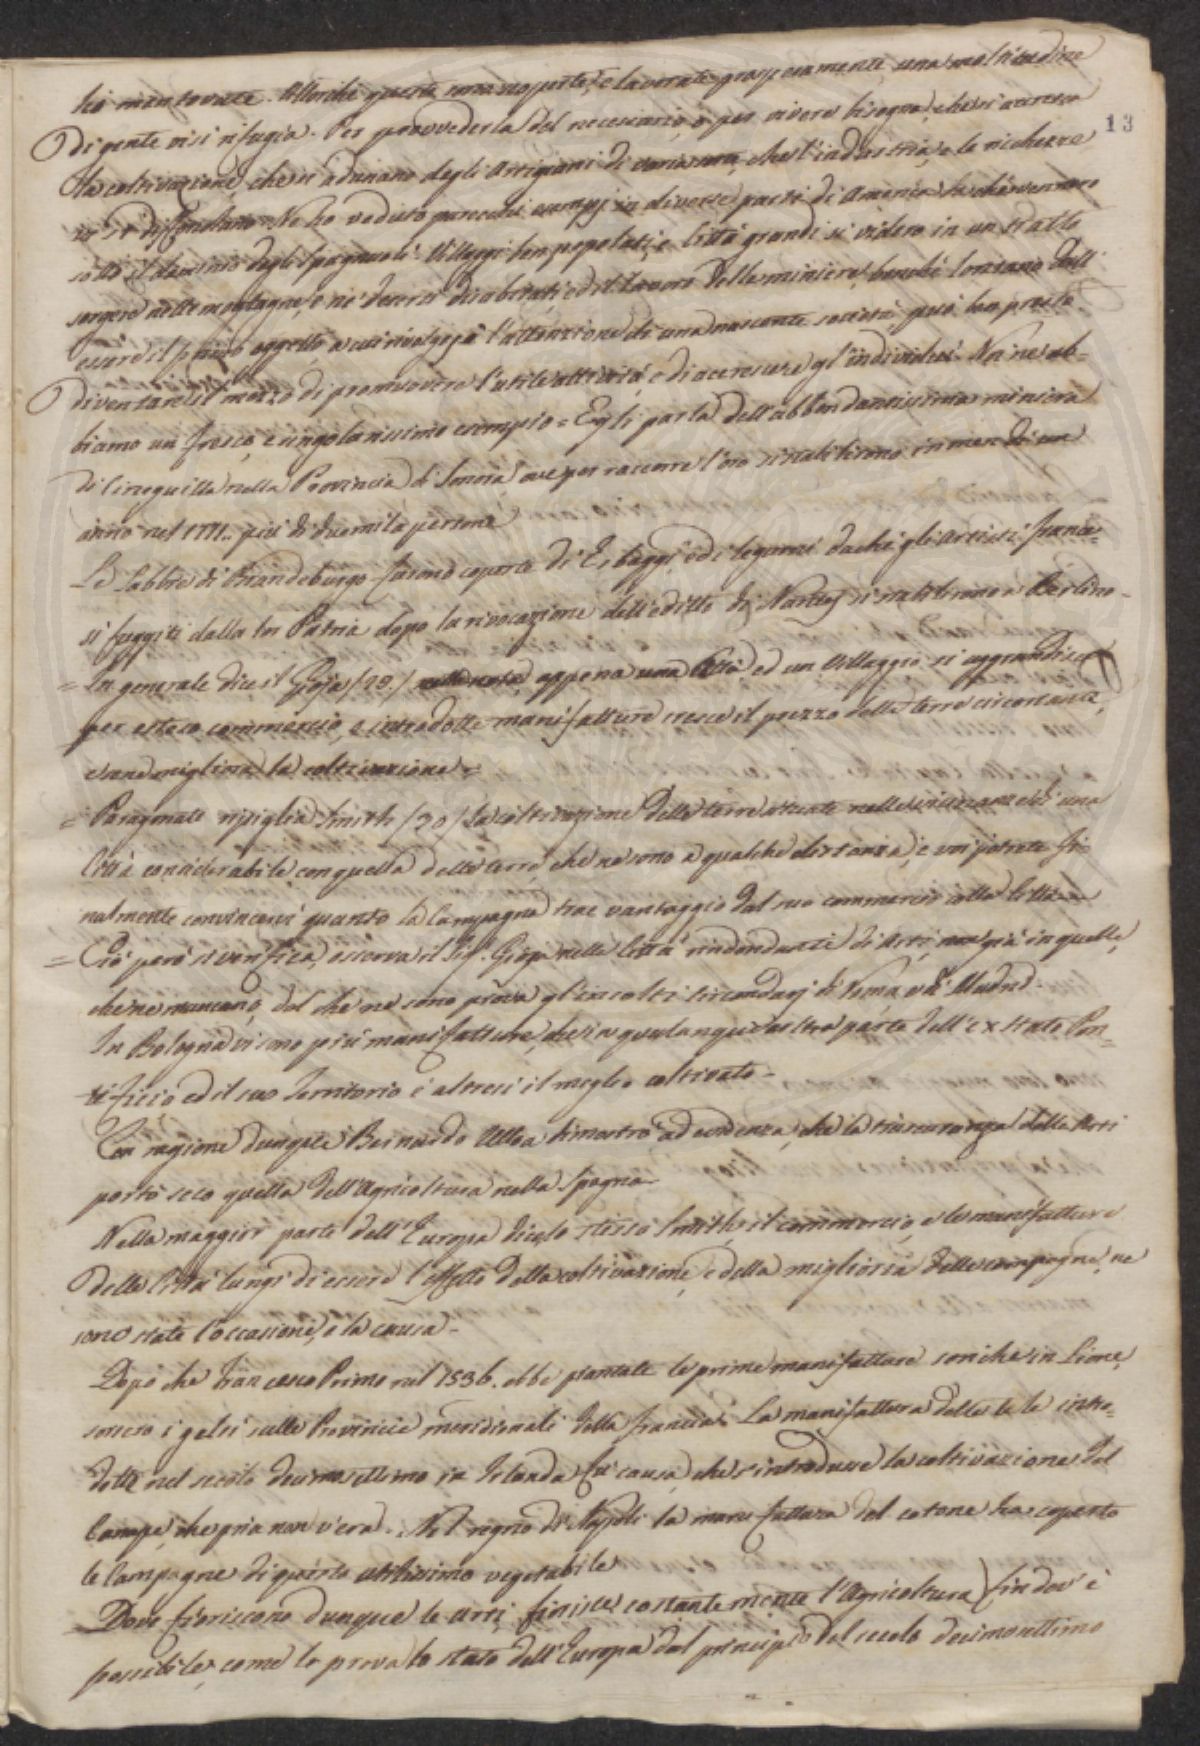 13
ho mentovate. Allorché queste sono scoperte, e lavorate prosperamente una moltitudine
di gente vi si rifugia. Per provvederla del necessario a per vivere bisogna, che si accresca
la coltivazione, che si adunano degli Artigiani di varia sorta, che l'industria, e le ricchezze
vi si diffondano. Ne ho veduto parecchi esempj in diverse parti di America
sotto il dominio degli Spagnuoli. Villaggi ben popolati, e Città grandi si videro in un tratto
sorgere nelle montagne, e ne' deserti disabitati, ed il lavoro delle miniere, benché lontano dall'
essere il primo oggetto a cui rivolgesi l'attenzione di una nascente società, può ben presto
diventare il mezzo di promuovere l'utile attività, e di accrescere gl'individui. Noi ne ab=
biamo un fresco, e singolarissimo esempio = Egli parla dell'abbondantissima miniera
di Cineguilla nella Provincia di Sonora, ove per raccorre l'oro si stabilirono in men di un
anno nel 1771. più di due mila persone
Le sabbie di Brandeburgo furono coperte di Erbaggi, ed i legumi dachè gli Artisti france=
si fuggiti dalla lor Patria dopo la rivocazione dell'editto di Nantes si stabilirono a Berlino.
= In generale dice il Gioja (29.) appena una Città ed un Villaggio si aggrandisce
per esteso commercio, e introdotte manifatture cresce il prezzo delle terre circostanti,
e se ne migliora la coltivazione =
= Paragonate ripiglia Smith (30) la coltivazione delle terre situate nelle vicinanze di una
Città considerabile con quella delle terre, che ne sono a qualche distanza, e voi potrete fi=
nalmente convincervi quanto la Campagna trae vantaggio dal suo commercio colla Città =
= Ciò però si verifica, osserva il Sig. Gioja nelle Città ridondanti di Arti, non già in quelle,
che ne mancano, dal che ne sono prova gl'incolti circondarj di Roma e di Madrid.
In Bologna vi sono più manifatture, che in qualunque altra parte dell'ex stato Pon=
tificio ed il suo Territorio è altresì il meglio coltivato.
Con ragione dunque Bernardo Ulloa dimostrò ad evidenza, che la trascuranza delle Arti
portò seco quella dell'Agricoltura nella Spagna.
Nella maggior parte dell'Europa dice lo stesso Smith, il commercio, e le manifatture
delle Città lungi di essere l'effetto della coltivazione, e della miglioria delle campagne, ne
sono state l'occasione, e la causa.
Dopo che Francesco Primo nel 1536. ebbe piantate le prime manifatture seriche in Lione,
sorsero i gelsi sulle Provincie meridionali della Francia. La manifattura delle tele intro=
dotta nel secolo decimosettimo in Irlanda fu causa, che s'introdusse la coltivazione del
Canape, che pria non v'era. Nel regno di Napoli la manifattura del cotone ha coperto
le Campagne di questo utilissimo vegetabile
Dove fioriscono dunque le arti, fiorisce costantemente l'Agricoltura fin dov'è
possibile, come lo prova lo stato dell'Europa dal principio del secolo decimosettimo